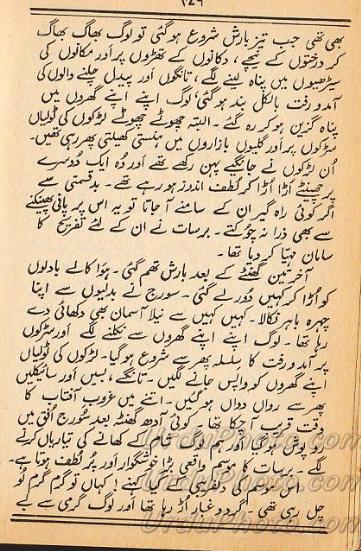 ۱۴۹
بھی تھی جب تیز بارش شروع ہوگئی تو لوگ بھاگ بھاگ
کر درختوں کے نیچے، دکانوں کے تھڑوں پر اور مکانوں کی
سیڑھیوں میں پناہ لینے لگے، تانگوں اور پیدل چلنے والوں کی
آمد و رفت بالکل بند ہوگئی، لوگ اپنے اپنے گھروں میں
پناہ گزین ہو کر رہ گئے۔ البتہ چھوٹے چھوٹے لڑکوں کی ٹولیاں
سڑکوں پر اور گلیوں بازاروں میں ہنستی کھیلتی پھر رہی تھیں۔
اُن لڑکوں نے جانگیے پہن رکھے تھے اور وُہ ایک دُوسرے
پر چھینٹے اُڑا اُڑا کر لُطف اندوز ہو رہے تھے۔ بدقسمتی سے
اگر کوئی راہ گیر ان کے سامنے آ جاتا تو یہ اس پر پانی پھینکنے
سے بھی ذرا نہ چُوکتے۔ برسات نے ان کے لئے تفریح کا
سامان مہیّا کر دیا تھا۔
آخر تین گھنٹے کے بعد بارش تھم گئی۔ ہَوا کالے بادلوں
کو اُڑا کر کہیں دُور لے گئی۔ سورج نے بدلیوں سے اپنا
چہرہ باہر نکالا۔ کہیں کہیں سے نیلا آسمان بھی دکھائی دے
رہا تھا۔ لوگ اپنے اپنے گھروں سے نکلنے لگے اور سڑکوں
پر آمد و رفت کا سلسلہ پھر سے شروع ہوگیا۔ لڑکوں کی ٹولیاں
اپنے گھروں کو واپس جانے لگیں۔ تانگے، بسیں اور سائیکلیں
پھر سے رواں دواں ہوگئیں۔ اتنے میں غروب آفتاب کا
وقت قریب آ چکا تھا۔ کوئی آدھ گھنٹہ بعد سُورج اُفق میں
روپوش ہوگیا اور ہم لوگ شام کے کھانے کی تیاریاں کرنے
لگے۔ برسات کا موسم واقعی بڑا خوشگوار اور پُر لُطف ہوتا ہے۔
اس موسم کی دلفریبی کے کیا کہنے! کہاں تو گرم گرم لُو
چل رہی تھی۔ گرد و غبار اُڑ رہا تھا اور لوگ گرمی سے بے
UrduPhoto.com